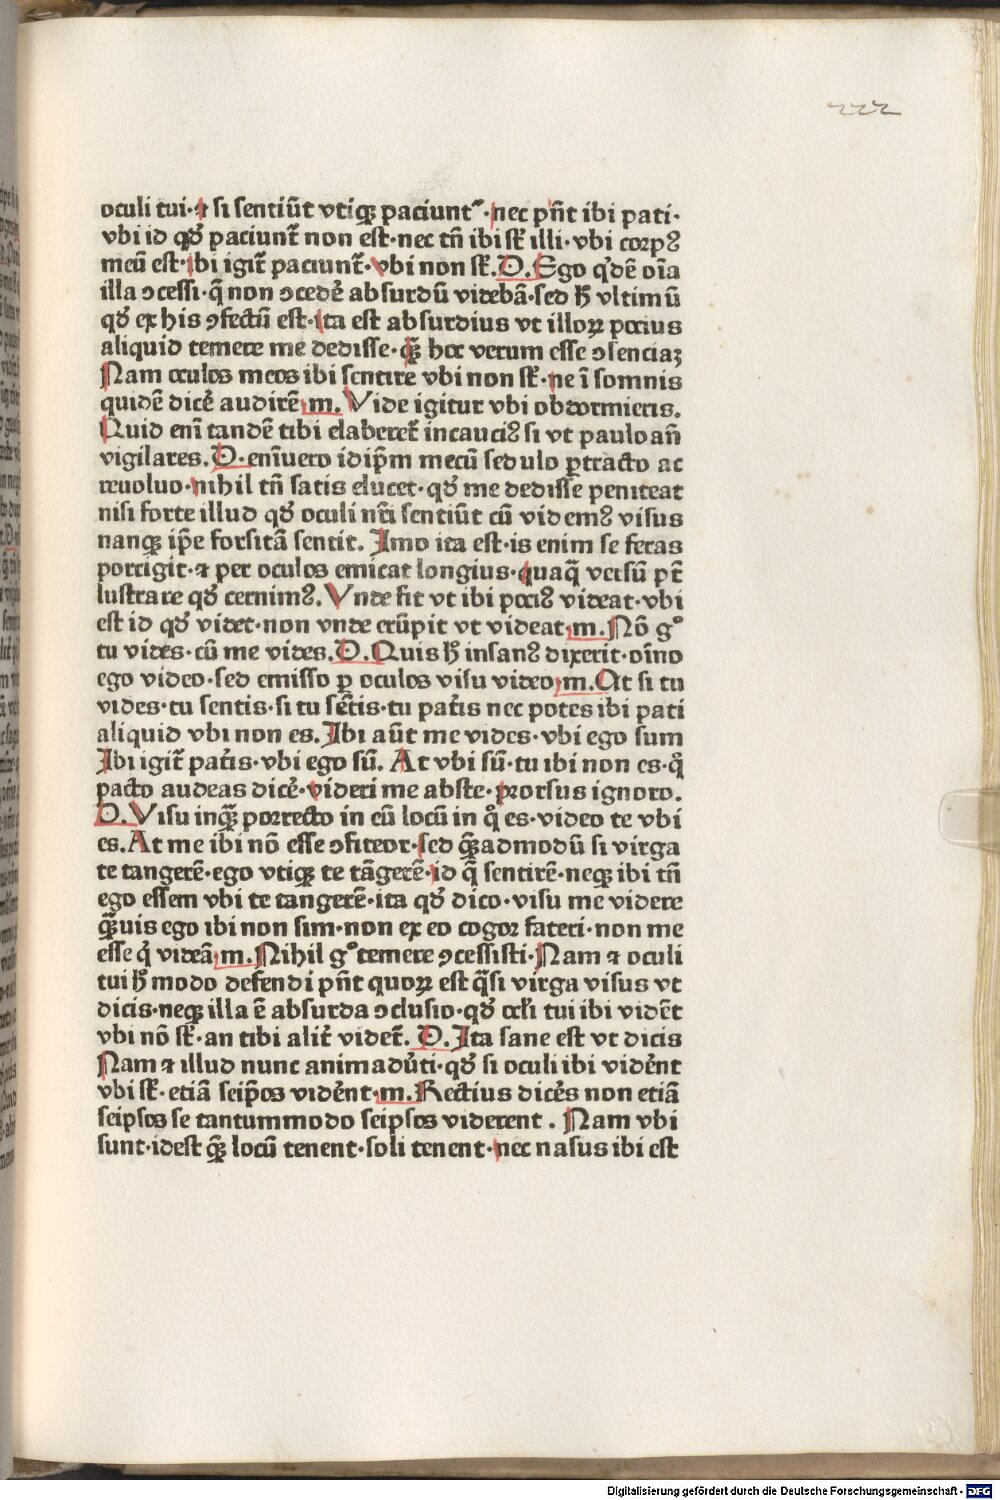 222
oculi tui·⁊ si sentiũt vtiqꝫ paciunt᷑·nec pñt ibi pati·
vbi id qđ paciunt᷑ non est·nec tñ ibi sť illi·vbi corpꝰ
meũ est·ibi igiť paciunť·vbi non sť.D.Ego qͥdẽ oĩa
illa ꝯcessi·q̃ non ꝯcedẽ absurdũ videbã·sed ħ vltimũ
qđ ex his ꝯfectũ est·ita est absurdius vt illoꝝ pocius
aliquid temere me dedisse·qꝫ̃ hoc verum esse ꝯsenciaꝫ
Nam oculos meos ibi sentire vbi non sť·ne ĩ somnis
quidẽ dicẽ audirẽ.m.Vide igitur vbi obdormieris.
Quid enĩ tandẽ tibi elaberet᷑ incauciꝰ si vt pauloañ
vigilares.D·enĩuero idip̃m mecũ sedulo ꝑtracto ac
reuoluo·nihil tñ satis elucet·qđ me dedisse peniteat
nisi forte illud qđ oculi nr̃i sentiũt cũ videmꝰ visus
nanqꝫ ip̃e forsitã sentit. Imo ita est·is enim se foras
porrigit·⁊ per oculos emicat longius·quaq̃ versũ pt̃
lustrare qđ cernimꝰ.Vnde fit vt ibi pociꝰ videat·vbi
est id qđ videt·non vnde erũpit vt videat.m.Nõ gͦ
tu vides·cũ me vides.D.Quis ħ insanꝰ dixerit·oĩno
ego video·sed emisso ꝑ oculos visu video.m.At si tu
vides·tu sentis·si tu sẽtis·tu pat̃is nec potes ibi pati
aliquid vbi non es.Ibi aũt me vides·vbi ego sum
Ibi igiť pat̃is·vbi ego sũ. At vbi sũ·tu ibi non es·qͦ
pacto audeas dicẽ·videri me abste·prorsus ignoro.
D.Visu inqꝫ̃ porrecto in eũ locũ in qͦ es·video te vbi
es.At me ibi nõ esse ꝯfiteor·sed qꝫ̃admodũ si virga
te tangerẽ·ego vtiqꝫ te tãgerẽ·id q̃ sentirẽ·neqꝫ ibi tñ
ego essem vbi te tangerẽ·ita qđ dico·visu me videre
qꝫ̃uis ego ibi non sim·non ex eo cogor fateri·non me
esse qͥ videã.m.Nihil gͦ temere ꝯcessisti·Nam ⁊ oculi
tui ħ modo defendi pñt quoꝝ est q̃si virga visus vt
dicis·neqꝫ illa ẽ absurda ꝯclusio·qđ ocl̃i tui ibi vidẽt
vbi nõ sť·an tibi alit̃ videt᷑. D.Ita sane est vt dicis
Nam ⁊ illud nunc animadũti·qđ si oculi ibi vidẽnt
vbi sť·etiã seip̃os vidẽnt·m.Rectius dicẽs non etiã
seipsos se tantummodo seipsos viderent . Nam vbi
sunt·idest qꝫ̃ locũ tenent·soli tenent·nec nasus ibi est
Digitalisierung gefördert durch die Deutsche Forschungsgemeinschaft - DFG